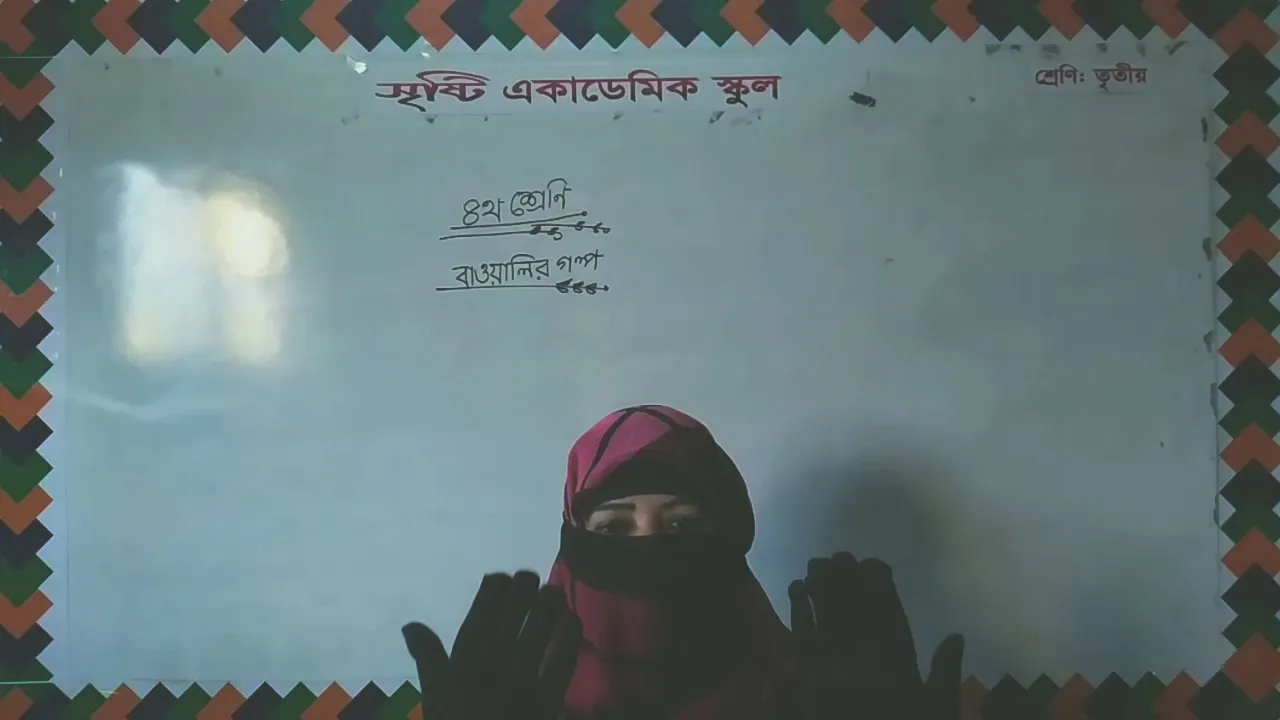 সৃষ্টি একাডেমিক স্কুল
শ্রেণি: তৃতীয়
৪থ শ্রেনি
বাওয়ালির গল্প